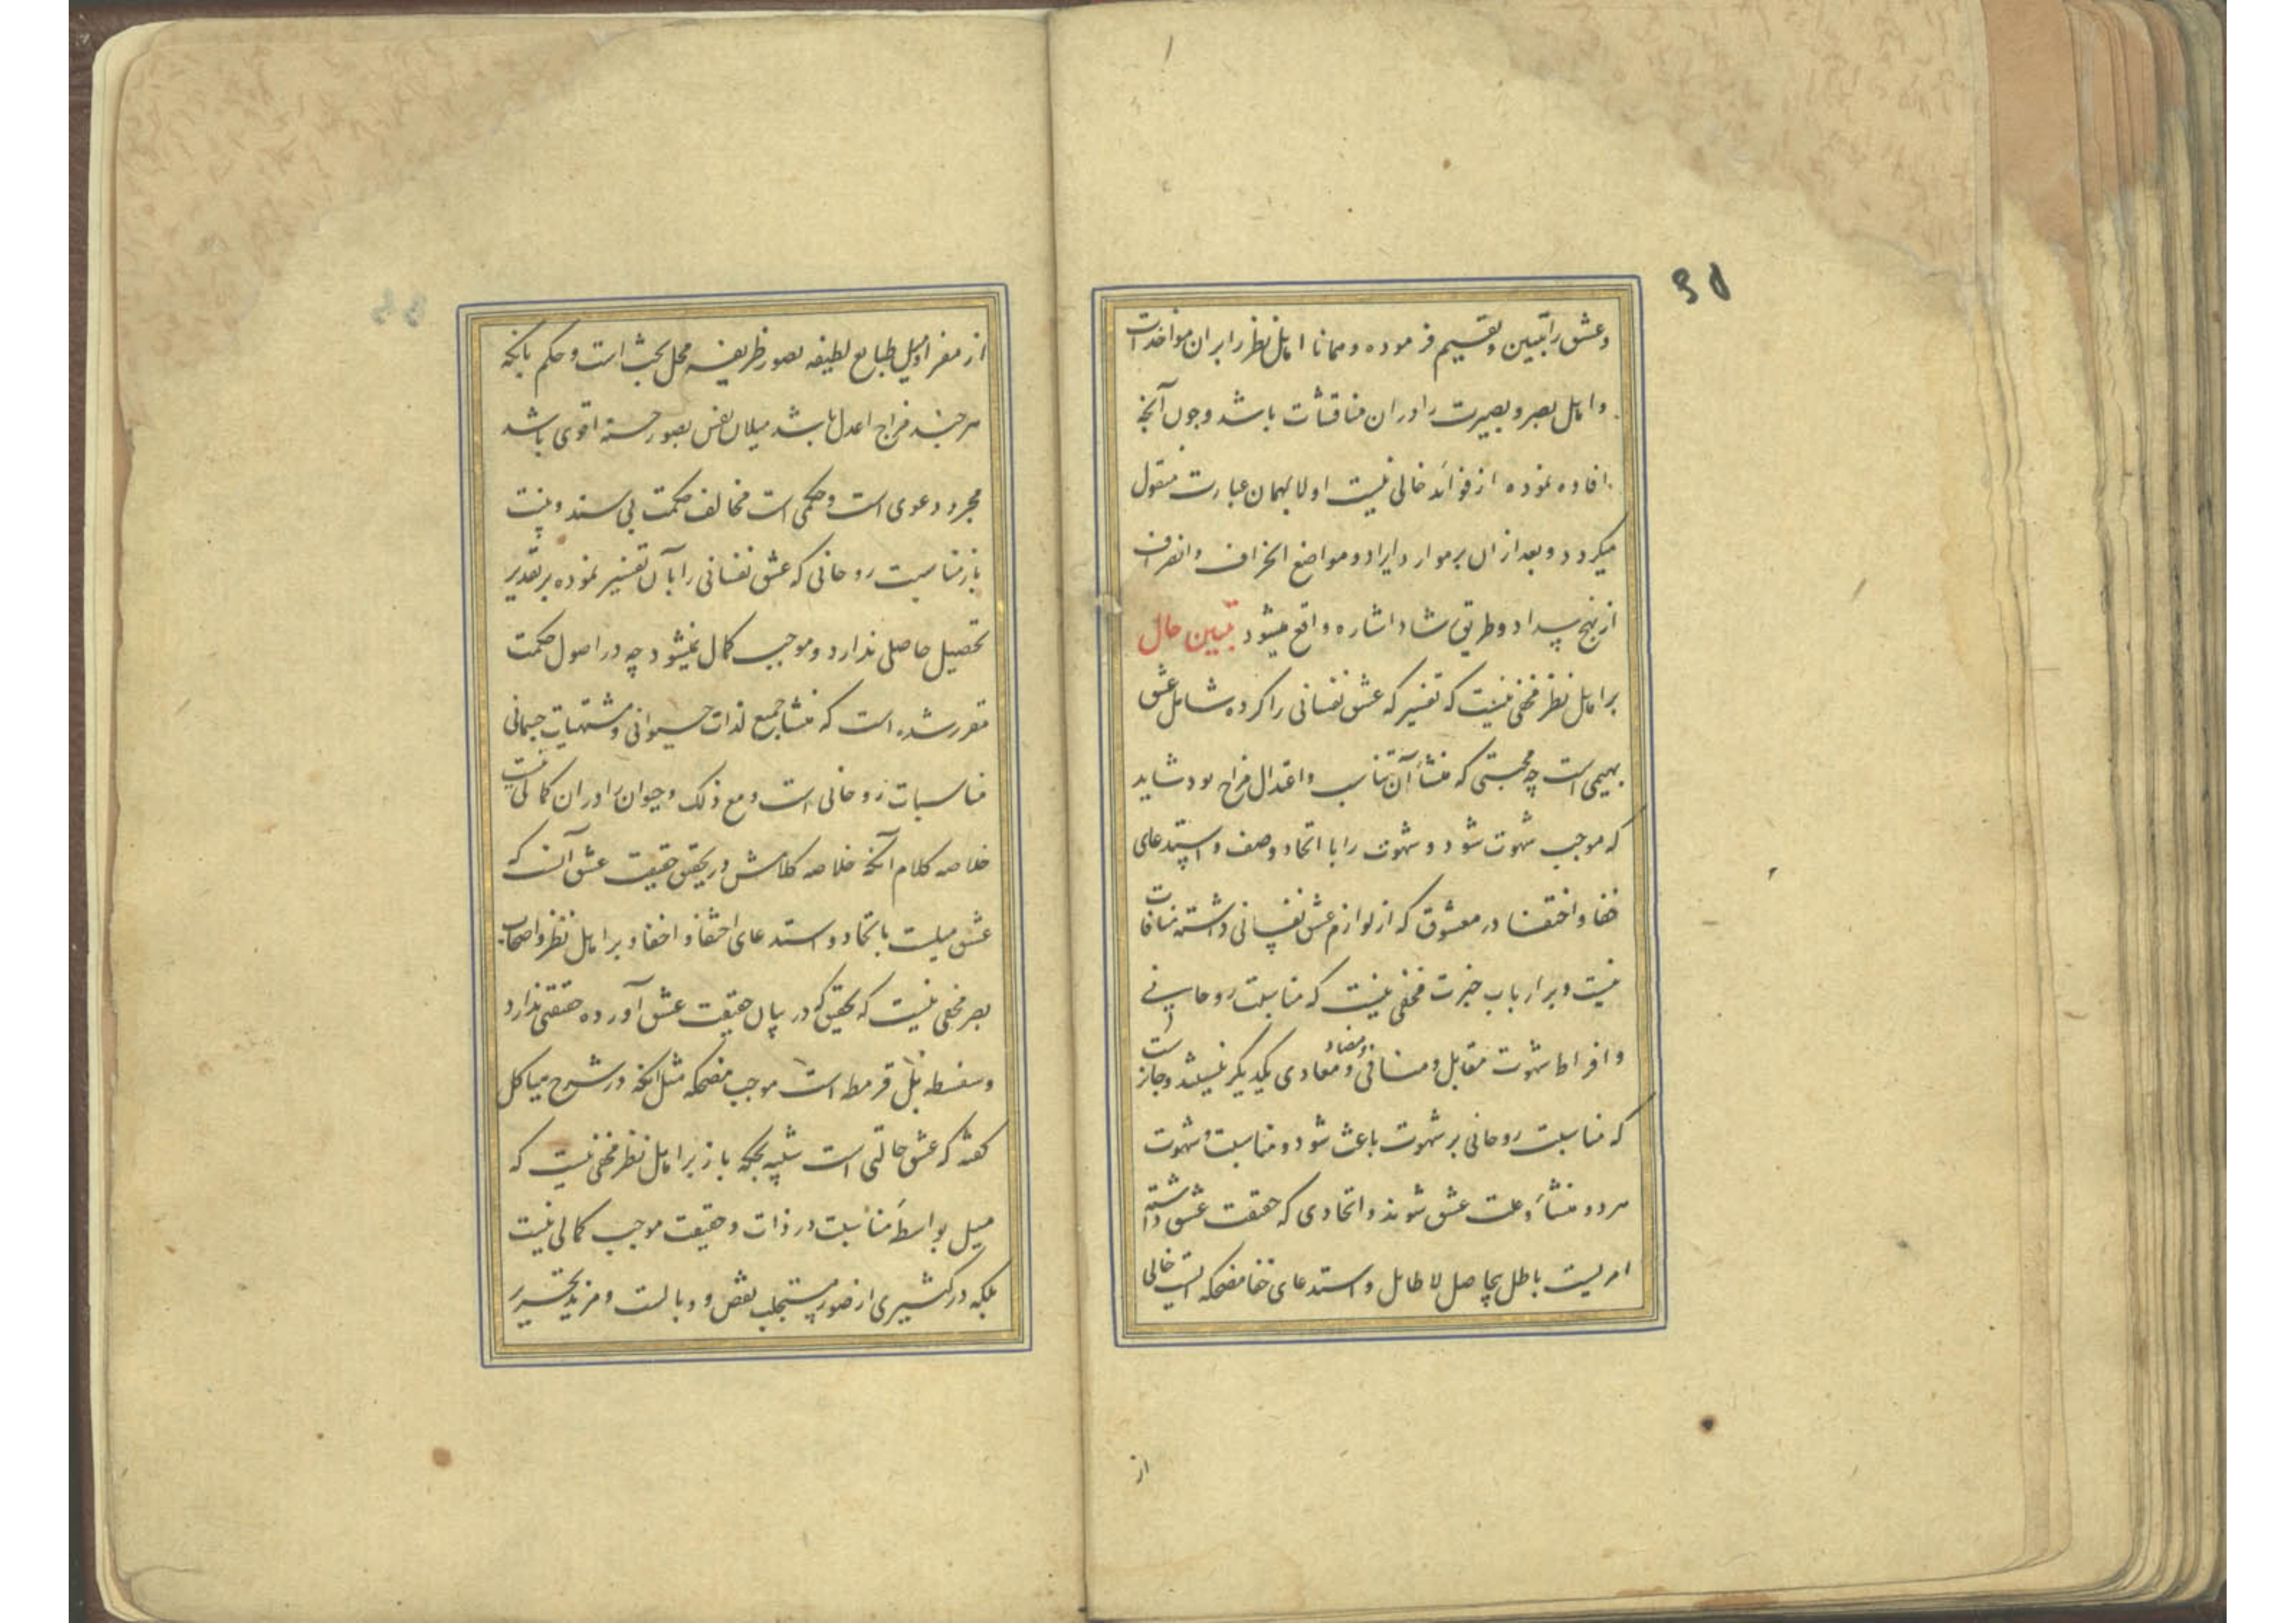 وعشق را تبیین و تقسیم فرموده و همانا اهل نظر را بران مواخذات
واهل بصر و بصیرت را دران مناقشات باشد و چون آنچه
افاده نموده از فوائد خالی نیست اولا بهمان عبارت منقول
میکردد و بعد از ان بر موارد ایراد و مواضع انحراف و انصراف
از نهج سداد و طریق رشاد اشاره واقع میشود تبیین حال
بر اهل نظر مخفی نیست که تفسیر که عشق نفسانی را کرده شامل عشق
بهیمی است چه محبتی که منشأ آن تناسب و اعتدال مزاج بود شاید
که موجب شهوت شود و شهوت را با اتحاد وصف و استدعای
خفا و اختفا در معشوق که از لوازم عشق نفسانی داشته منافات
نیست و بر ارباب خبرت مخفی نیست که مناسبت روحانی
و افراط شهوت مقابل و منافی و مضاد و معادی یکدیگر نیستند و جائز است
که مناسبت روحانی بر شهوت باعث شود و مناسبت و شهوت
هر دو منشأ و علت عشق شوند و اتحادی که حقیقت عشق داشته
امریست باطل بیحاصل لا طایل و استدعای خفا مضحکه ایست خالی
از
از مغز او میل طبایع لطیفه بصور ظریفه محل بحث است و حکم بانکه
هر چند مزاج اعدل باشد میلان نفس بصور حسنه اقوی باشد
مجرد دعوی است و حکمی است مخالف حکمت بی سند و بینت
باز مناسبت روحانی که عشق نفسانی را بآن تفسیر نموده بر تقدیر
تحصیل حاصلی ندارد و موجب کمال نمیشود چه در اصول حکمت
مقرر شده است که منشأ جمیع لذات حیوانی و مشتهیات جسمانی
مناسبات روحانی است و مع ذلک حیوان را دران کمالی نیست
خلاصه کلام آنکه خلاصه کلامش در تحقیق حقیقت عشق آنست که
عشق میلیست باتحاد و استدعای اختفا و اخفا و بر اهل نظر و اصحاب
بصر مخفی نیست که تحقیق که در بیان حقیقت عشق آورده حقیقتی ندارد
و سفسطه بل قرمطه است موجب مضحکه مثل آنکه در شرح هیاکل
گفته که عشق حالتی است شبیه بحکه باز بر اهل نظر مخفی نیست که
میل بواسطهٔ مناسبت در ذات و حقیقت موجب کمالی نیست
بلکه در کثیری از صور مستجلب نقص و وبالست و مزید تحسیر